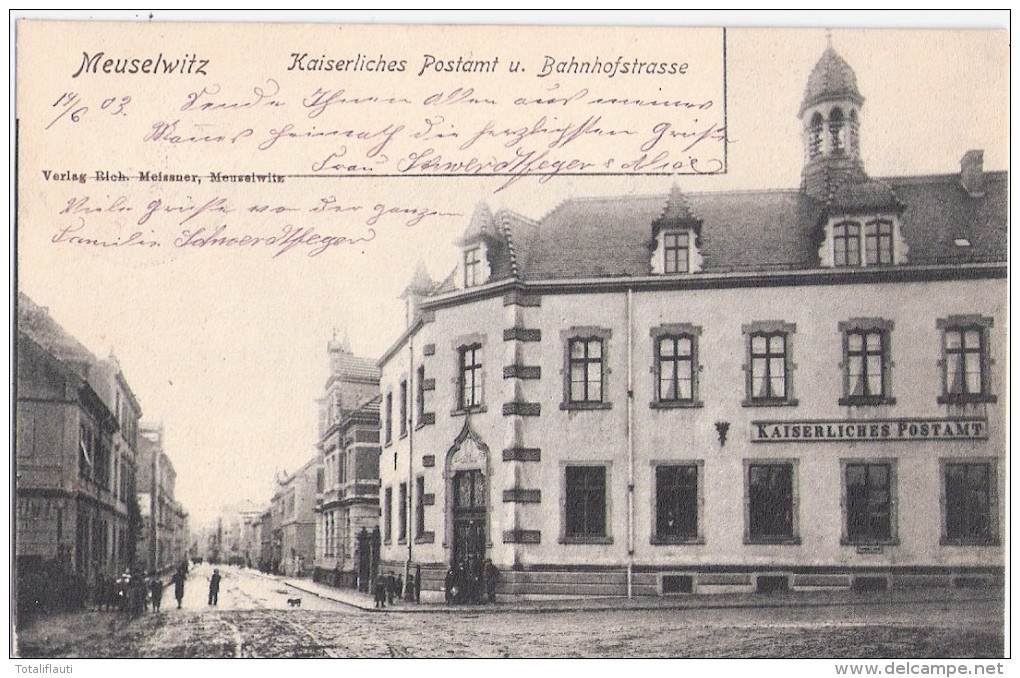 Meuselwitz Kaiserliches Postamt u. Bahnhofstrasse
14/6 03. Sende Ihnen Allen aus meines
Mannes Heimath die herzlichsten Grüße
Frau Schwerdtfeger &
Verlag Rich. Meissner, Meuselwitz
Viele Grüße von der ganzen
Familie Schwerdtfeger
KAISERLICHES POSTAMT
Totaliflauti
http://www.delcampe.net